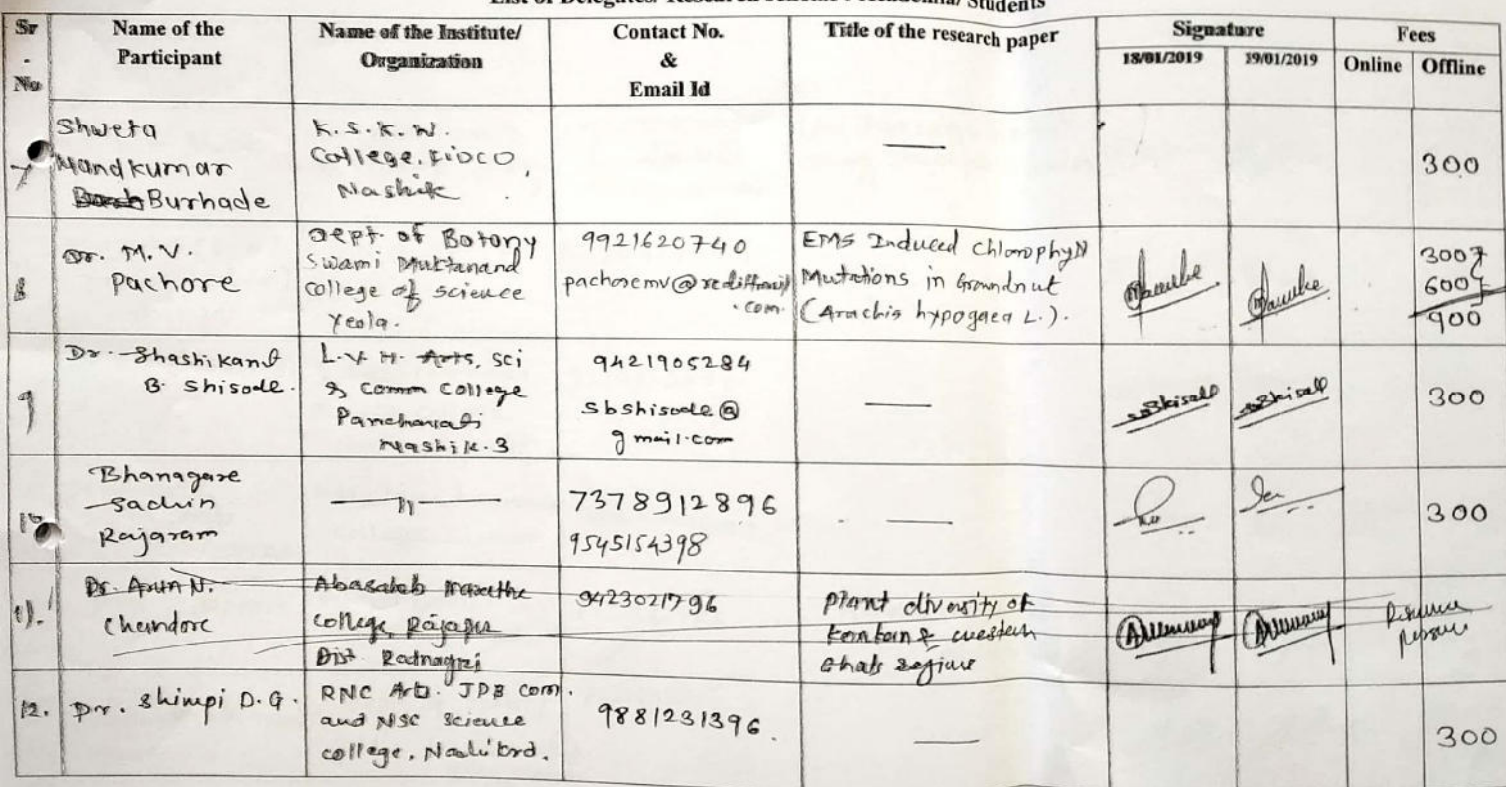 Students
Sr
.
No
Name of the
Participant
Name of the Institute/
Organization
Contact No.
&
Email Id
Title of the research paper
Signature
18/01/2019
19/01/2019
Fees
Online
Offline
7
Shweta
Nandkumar
Burhade
K.S.K.W.
College,
Nashik
300
8
Dr. M.V.
Pachore
Dept. of Botany
Swami Muktanand
College of science
Yeola.
9921620740
pachoremv@rediffmail
.com.
EMS Induced Chlorophyll
Mutations in Groundnut
(Arachis hypogaea L.).
300
600
900
9
Dr. Shashikant
B. Shisode.
L.V.H. Arts, Sci
& Comm College
Panchavati
Nashik.3
9421905284
sbshisode@
gmail.com
300
10
Bhanagare
Sachin
Rajaram
—〃—
7378912896
9545154398
300
11.
Dr. Arun N.
Chandore
Abasaheb Marathe
College, Rajapur
Dist. Ratnagiri
9423021796
Plant diversity of
western
Ghats
Resource
12.
Dr. Shimpi D.G.
RNC Arts. JDB Com.
and NSC Science
college,
9881231396.
300